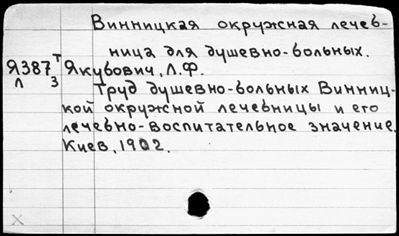 Винницкая окружная лечеб-
ница для душевно-больных.
Я387 Т Якубович, Л.Ф.
Л 3 Труд душевно-больных Винниц-
кой окружной лечебницы и его
лечебно-воспитательное значение.
Киев, 1902.
X